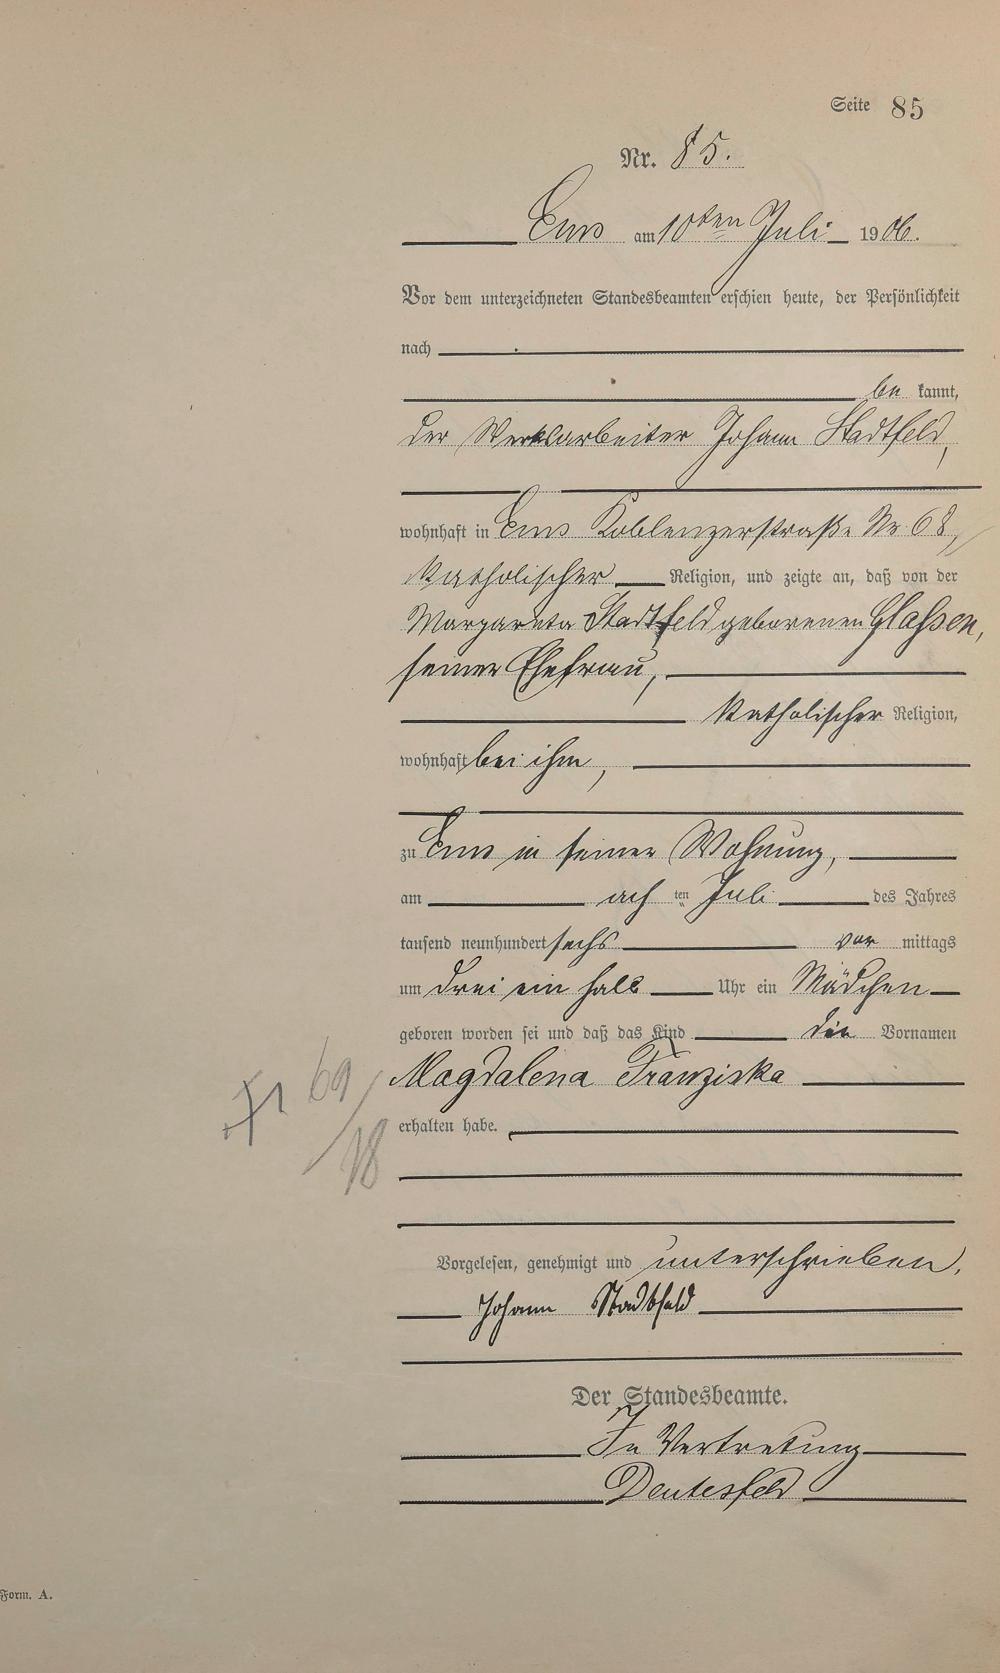 Seite 85
Nr. 85.
Ems am 10ten Juli 1906.
Vor dem unterzeichneten Standesbeamten erschien heute, der Persönlichkeit
nach
be kannt,
der Werksarbeiter Johann Stadtfeld,
wohnhaft in Ems Koblenzerstraße Nr 68,
katholischer Religion, und zeigte an, daß von der
Margareta Stadtfeld geborenen Glaßen,
seiner Ehefrau,
katholischer Religion,
wohnhaft bei ihm,
zu Ems in seiner Wohnung,
am ach ten Juli des Jahres
tausend neunhundert sechs vor mittags
um drei ein halb Uhr ein Mädchen
geboren worden sei und daß das Kind die Vornamen
Magdalena Franziska
erhalten habe.
69/18
Vorgelesen, genehmigt und unterschrieben.
Johann Stadtfeld
Der Standesbeamte.
In Vertretung
Deutesfeld
Form. A.